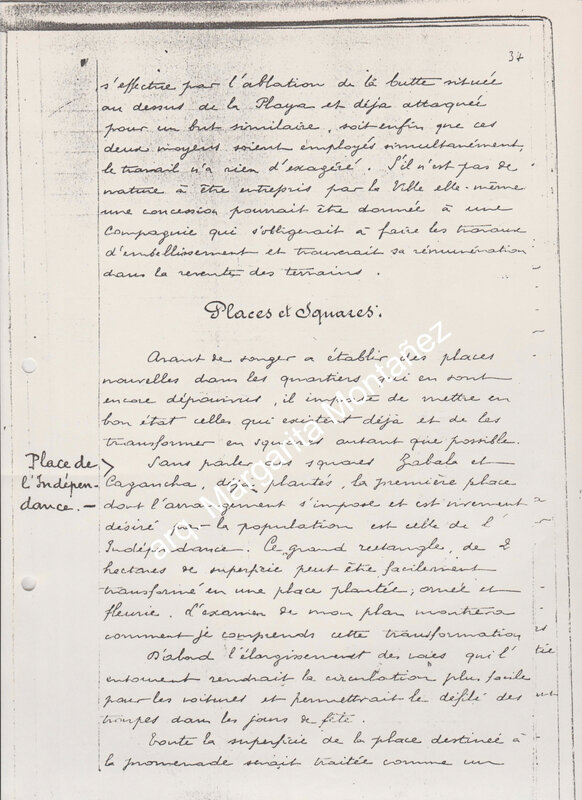 37
s'effectue par l'ablation de la butte située
au dessus de la Playa et déja attaquée
pour un but similaire, soit enfin que ces
deux moyens soient employés simultanément,
le travail n'a rien d'exagéré. S'il n'est pas de
nature à être entrepris par la Ville elle-même
une concession pourrait être donnée à une
Compagnie qui s'obligerait à faire les travaux
d'embellissement et trouverait sa rémunération
dans la revente des terrains.
Places et Squares.
Avant de songer a établir des places
nouvelles dans les quartiers qui en sont
encore dépourvus, il importe de mettre en
bon état celles qui existent déja et de les
transformer en squares autant que possible.
Place de
l'Indépen-
dance. -
Sans parler des squares Zabala et
Cagancha, déja plantés, la première place
dont l'arrangement s'impose et est vivement
désiré par la population est celle de l'
Indépendance. Ce grand rectangle, de 2
hectares de superficie peut être facilement
transformé en une place plantée, ornée et
fleurie. L'examen de mon plan montrera
comment je comprends cette transformation
D'abord l'élargissement des voies qui l'
entourent rendrait la circulation plus facile
pour les voitures et permettrait le défilé des
troupes dans les jours de fête.
Toute la superficie de la place destinée à
la promenade serait traitée comme un
arq. Margarita Montañez